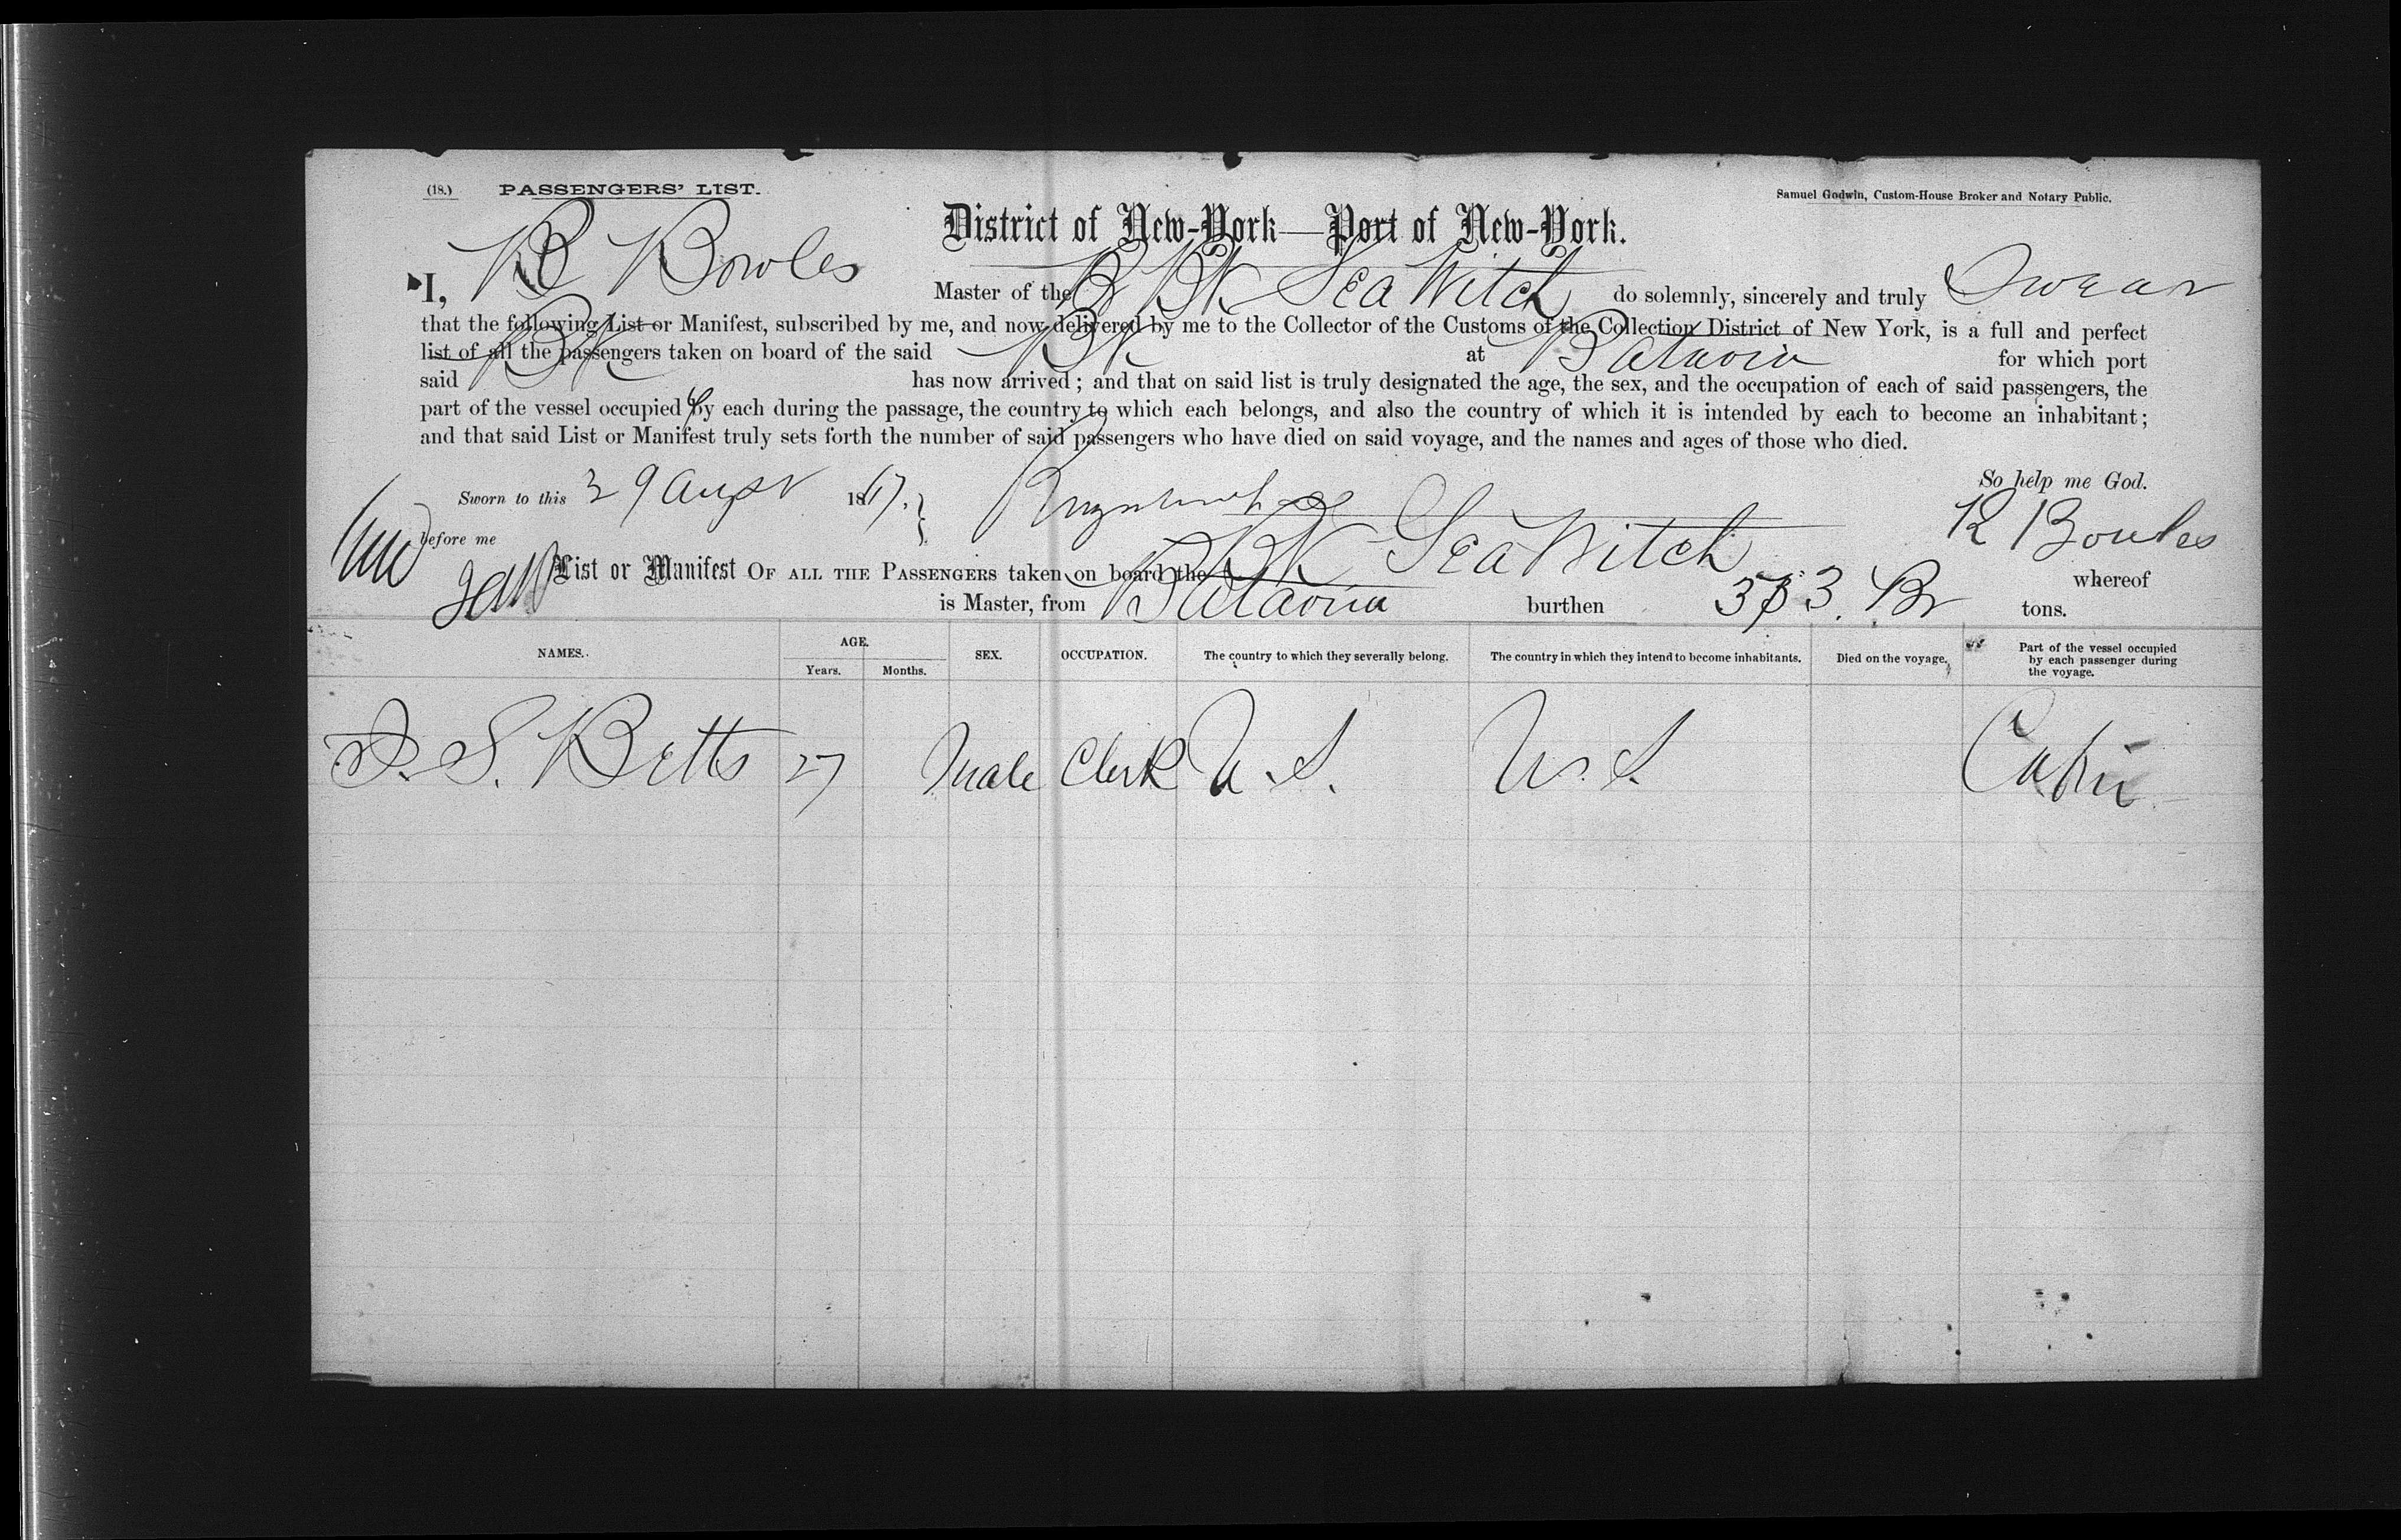 (18.) PASSENGERS' LIST.
Samuel Godwin, Custom-House Broker and Notary Public.
District of New-York—Port of New-York.
I, R Bowles Master of the B BK Sea Witch do solemnly, sincerely and truly Swear
that the following List or Manifest, subscribed by me, and now delivered by me to the Collector of the Customs of the Collection District of New York, is a full and perfect
list of all the passengers taken on board of the said BK at Batavia for which port
said BK has now arrived; and that on said list is truly designated the age, the sex, and the occupation of each of said passengers, the
part of the vessel occupied by each during the passage, the country to which each belongs, and also the country of which it is intended by each to become an inhabitant;
and that said List or Manifest truly sets forth the number of said passengers who have died on said voyage, and the names and ages of those who died.
So help me God.
Sworn to this 29 Augst 1867.
R Bowles
before me
List or Manifest OF ALL THE PASSENGERS taken on board the BK Sea Witch whereof
is Master, from Batavia burthen 373. Br tons.
NAMES. AGE. SEX. OCCUPATION. The country to which they severally belong. The country in which they intend to become inhabitants. Died on the voyage. Part of the vessel occupied
by each passenger during
the voyage.
Years. Months.
S. Betts 27 Male Clerk U.S. U.S. Cabin